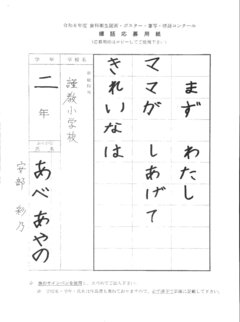 令和6年度 歯科衛生図画・ポスター・書写・標語コンクール
標語応募用紙
(応募用紙はコピーしてご使用下さい)
まず わたし
ママが しあげて
きれいなは
学校名
謹教小学校
学年
二年
氏名
あべ あやの
安部 彩乃